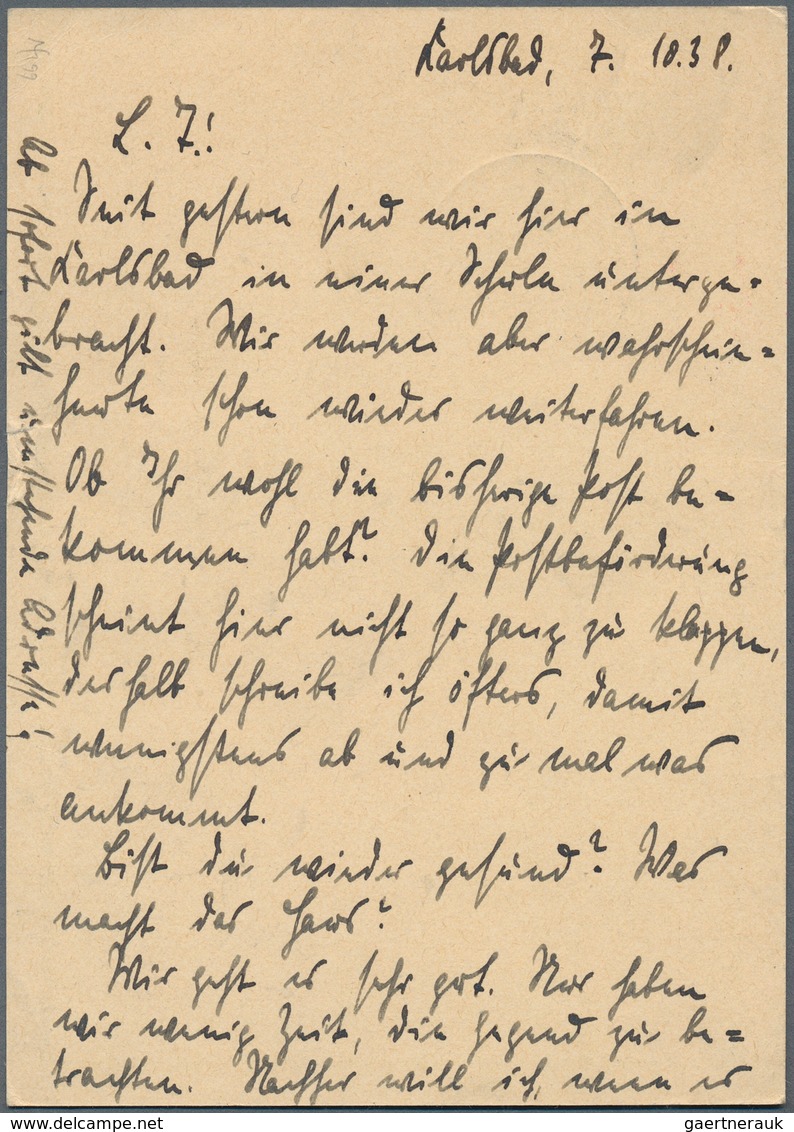 Karlsbad, 7. 10.38.
L. I.!
Seit gestern sind wir hier in
Karlsbad in einer Schule unterge=
bracht. Wir werden aber wahrschein=
heute schon wieder weiterfahren.
Ob Ihr wohl die bisherige Post be=
kommen habt? Die Postbeförderung
scheint hier nicht so ganz zu klappen,
deshalb schreibe ich öfters, damit
wenigstens ab und zu mal was
ankommt.
Bist du wieder gesund? Was
macht das Haus?
Mir geht es sehr gut. Nur haben
wir wenig Zeit, die Gegend zu be=
trachten. Nachher will ich, wenn es
Ab sofort gilt umstehende Adresse!
gaertnerauk